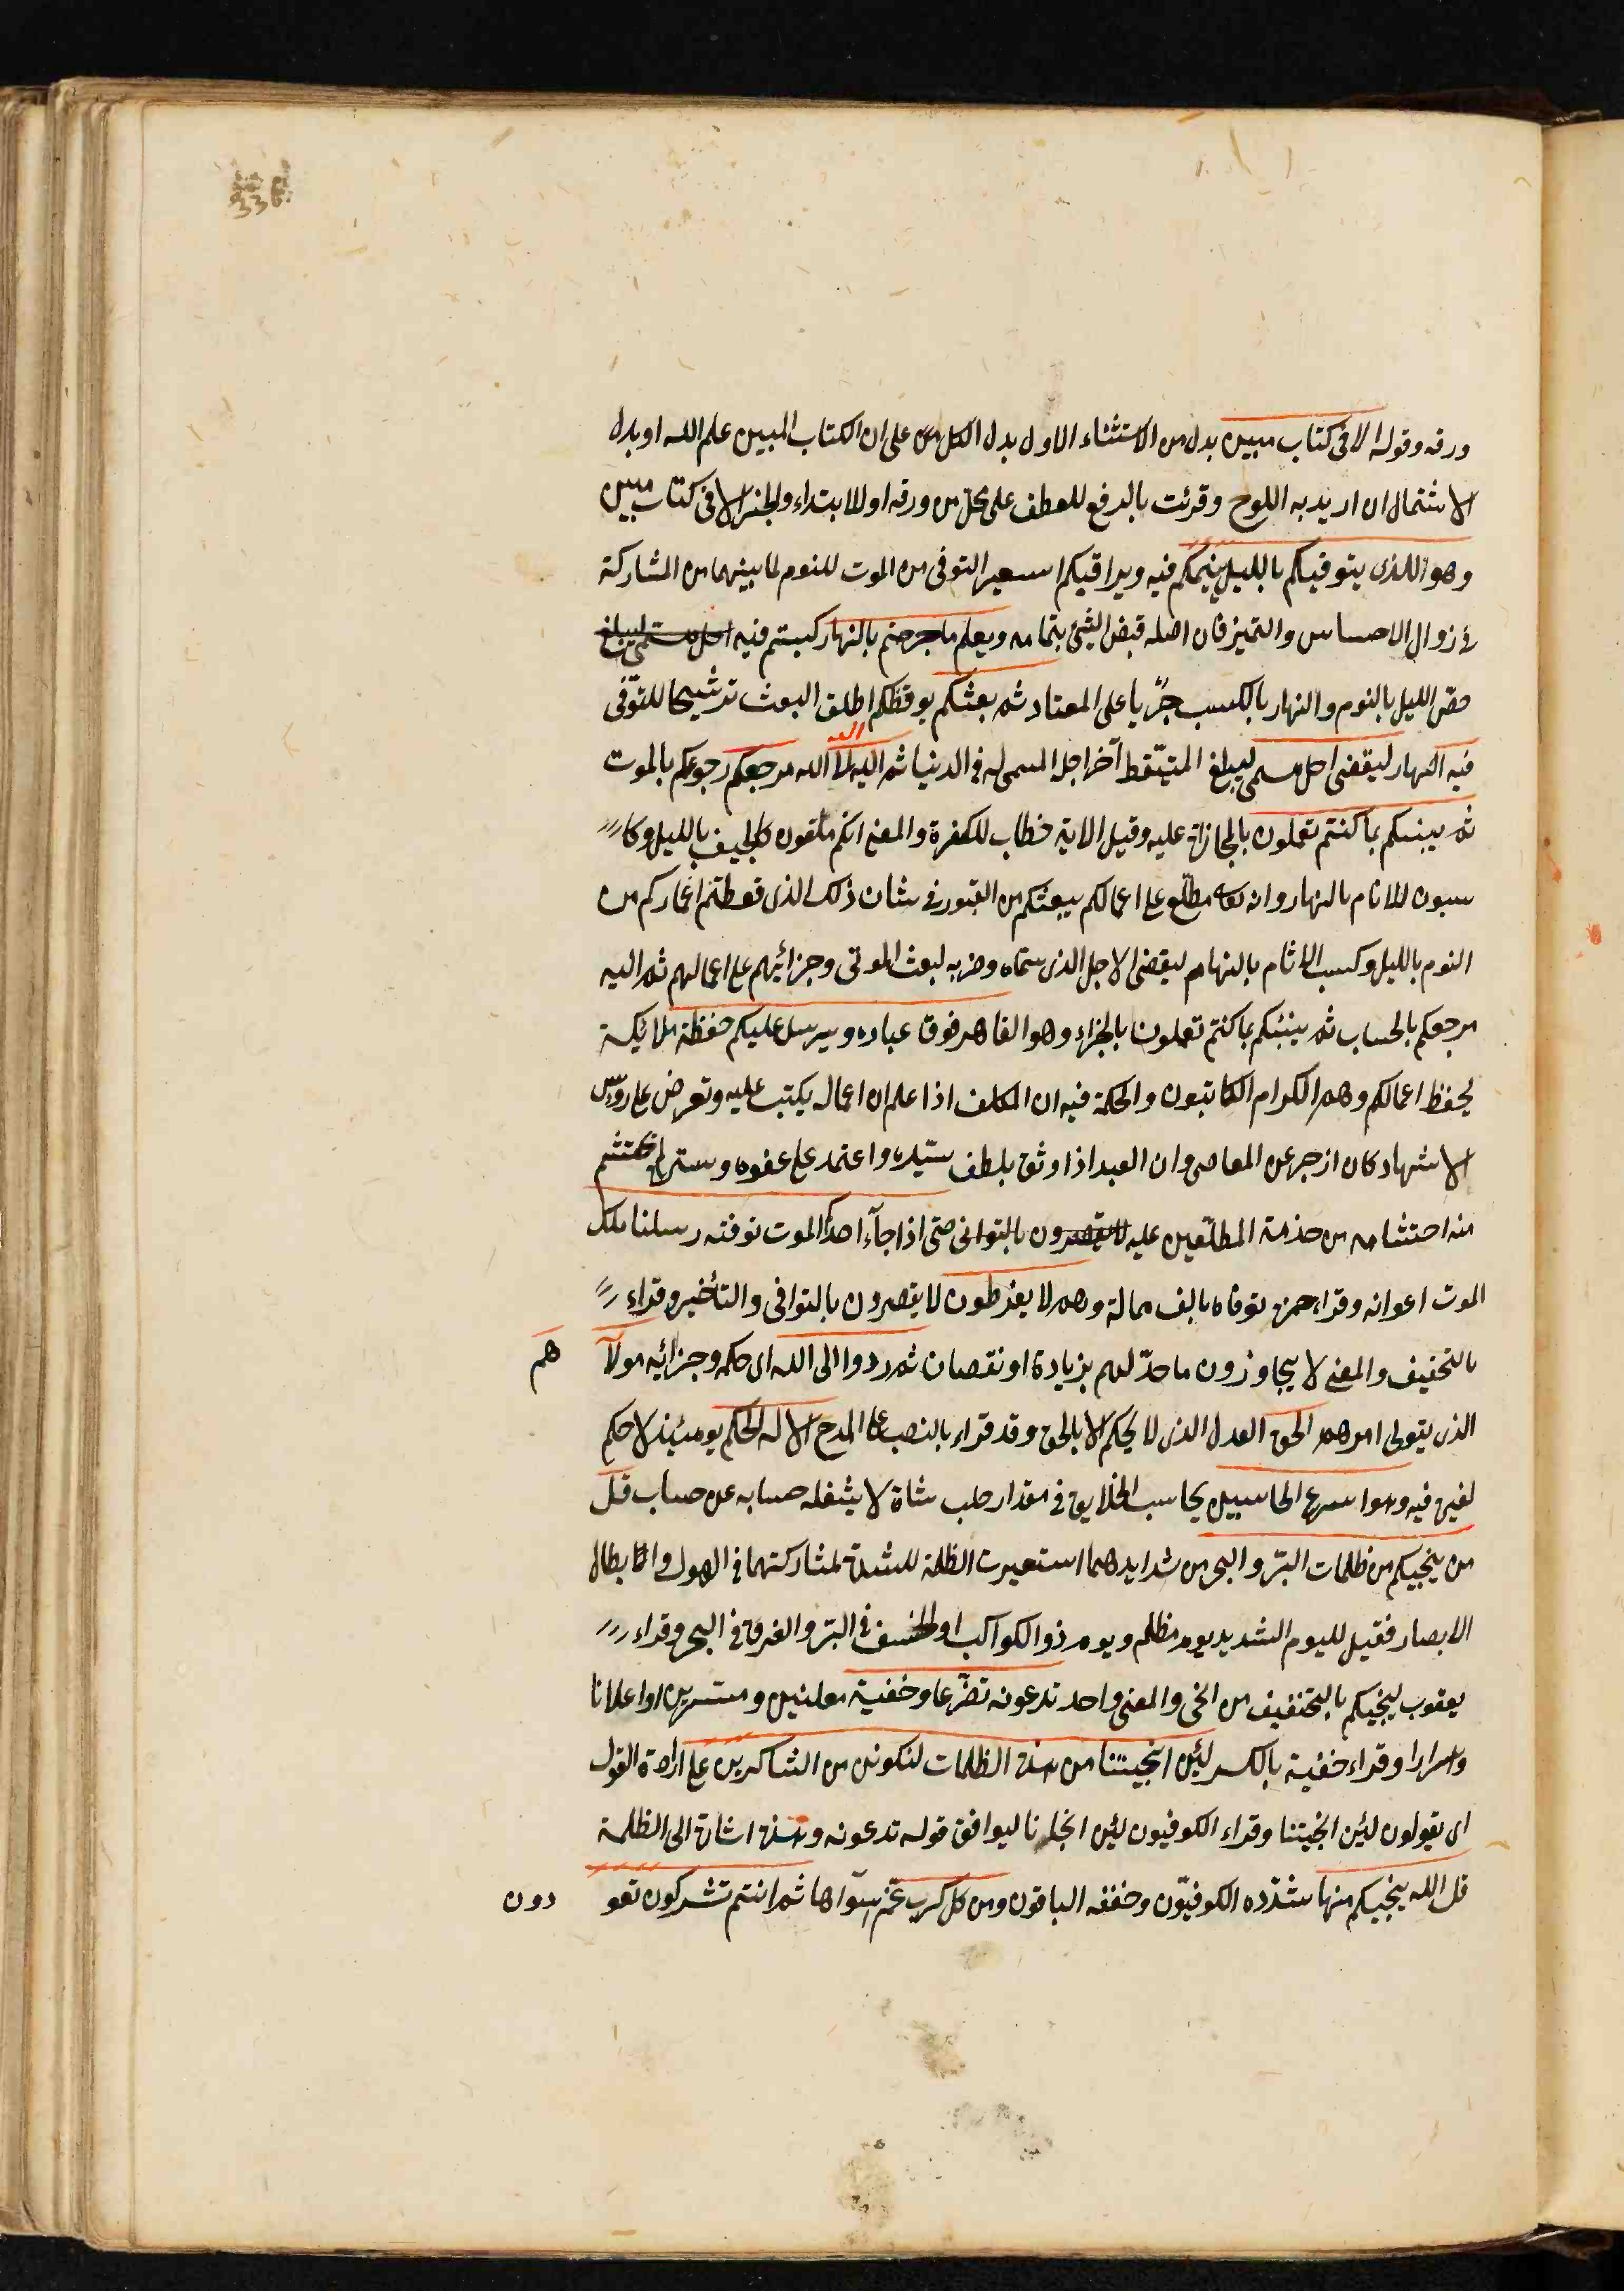 336
ورقه وقوله الا فى كتاب مبين بدل من الاستثناء الاول بدل الكل من على ان الكتاب المبين علم الله او بدل
الاشتمال ان اريد به اللوح وقرئت بالرفع للعطف على محل من ورقه او للابتداء والخبر الا فى كتاب مبين
وهو اللذى يتوفيكم بالليل ينيمكم فيه ويراقبكم استعير التوفى من الموت للنوم لما بينهما من المشاركة
فى زوال الاحساس والتميز فان اصله قبض الشئ بتمامه ويعلم ما جرحتم بالنهار كسبتم فيه اجل مسمى ليبلغ
خص الليل بالنوم والنهار بالكسب جرًيا على المعتاد ثم بعثكم يوقظكم اطلق البعث ترشيحا للتوّفى
فيه النهار ليقضى اجل مسمى ليبلغ المتيّقظ آخر اجل المسمى له فى الدنيا ثم اليه لا الله مرجعكم رجوعكم بالموت
ثم ينبئكم بما كنتم تعملون بالمجازاة عليه وقيل الاية خطاب للكفرة والمعنى انكم ملقون كالجيف بالليل وكا
سبون للاثام بالنهار وانه تعه مطّلع على اعمالكم يبعثكم من القبور فى شان ذلك الذى قعطتم اعماركم من
النوم بالليل وكسب الاثام بالنهار ليقضى الاجل الذى سمّاه وضربه لبعث الموتى وجزائيهم على اعمالهم ثم اليه
مرجعكم بالحساب ثم ينبئكم بما كنتم تعملون بالجزاء وهو القاهر فوق عباده ويرسل عليكم حفظة ملائكة
يحفظ اعمالكم وهم الكرام الكاتبون والحكمة فيه ان المكلف اذا علم ان اعماله يكتب عليه وتعرض على رؤس
الاشهاد كان ازجر عن المعاصى وان العبد اذا وثق بلطف سيّده واعتمد على عفوه وستره لم يحتشم
منه احتشامه من خدمة المطلّعين عليه لا يقصرون بالتوانى حتى اذا جآء احدكم الموت توفته رسلنا ملك
الموت اعوانه وقراء حمزه توفاه بالف ممالة وهم لا يفرطون لا يقصرون بالتوافى والتأخير وقراء
بالتخفيف والمعنى لا يتجاوزون ما حدّ لهم بزيادة او نقصان ثم ردوا الى الله اى حكمه وجزائيه مولآ هم
الذى يتولى امرهم الحق العدل الذى لا يحكم الا بالحق وقد قراء بالنصب على المدح الا له الحكم يومئيذ لا حكم
لغيره فيه وهو اسرع الحاسبين يحاسب الخلايق فى مقدار حلب شاة لا يشغله حسابه عن حساب قل
من ينجيكم من ظلمات البّر والبحر من شدايدهما استعيرت الظلمة للشدة لمشاركتهما فى الهول وابطال
الابصار فقيل لليوم الشديد يوم مظلم ويوم ذو الكواكب او الخسف فى البّر والغرق فى البحر وقراء
يعقوب ليجيكم بالتخفيف من انجى والمعنى واحد تدعونه تضّرعا وخفية معلنين ومستسرين او اعلانا
واسرارا وقراء خفية بالكسر لئن انجيتنا من هذه الظلمات لنكونن من الشاكرين على ارادة القول
اى يقولون لئن انجيتنا وقراء الكوفيون لئن انجانا ليوافق قوله تدعونه وهذه اشارة الى الظلمة
قل الله ينجيكم منها شدّده الكوفيّون وخففه الباقون ومن كل كرب غّم سوآها ثم انتم تشركون تعو دون